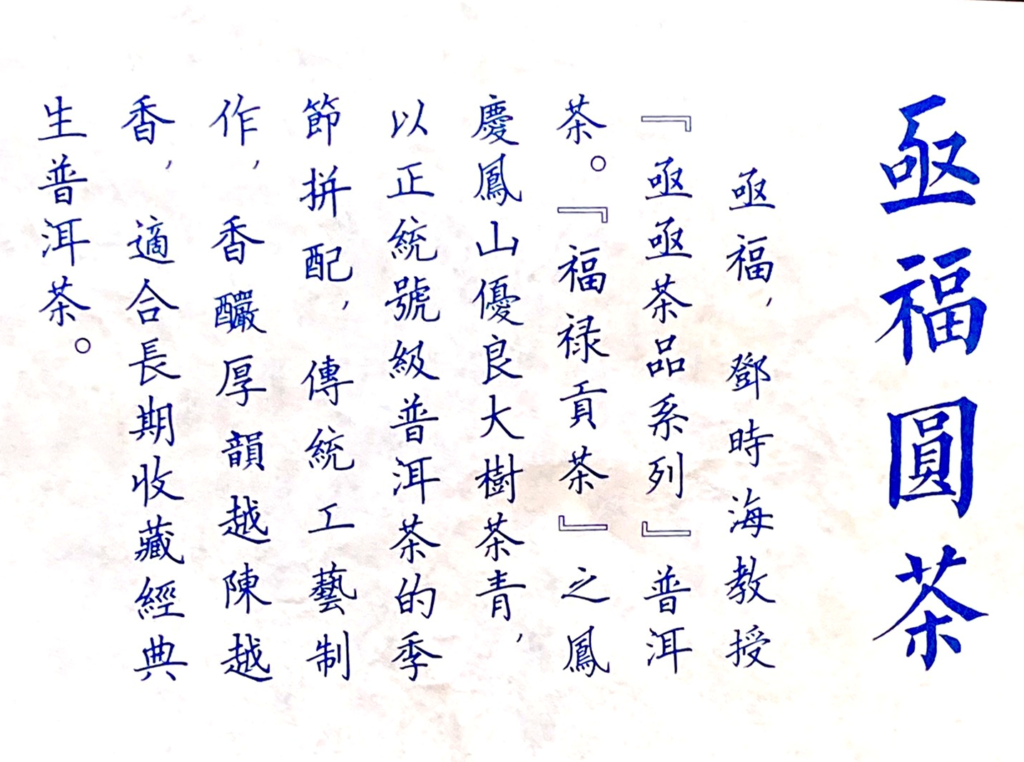 亟福圓茶
亟福，鄧時海教授
『亟亟茶品系列』普洱
茶。『福禄貢茶』之鳳
慶鳳山優良大樹茶青，
以正統號級普洱茶的季
節拼配，傳統工藝制
作，香釅厚韻越陳越
香，適合長期收藏經典
生普洱茶。